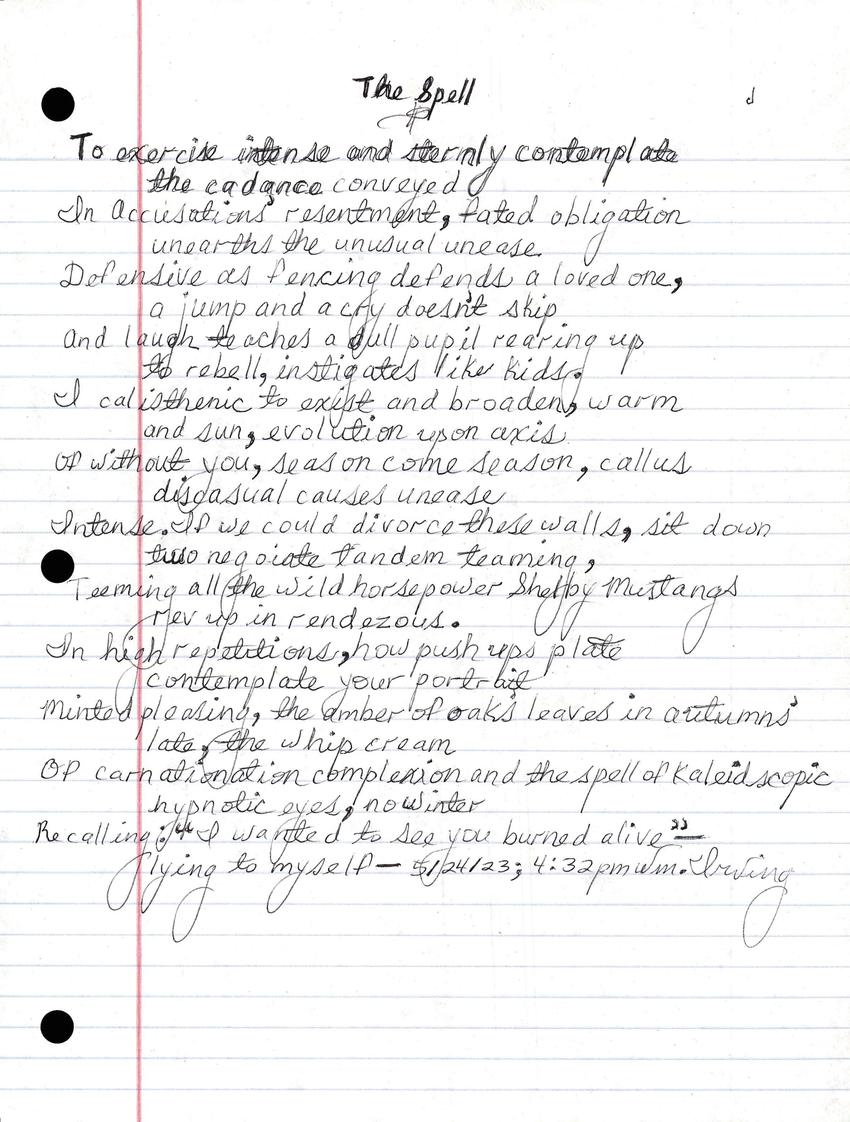 The Spell
To exercise intense and sternly contemplate
the cadance conveyed
In Accusations' resentment, fated obligation
unearths the unusual unease.
Defensive as fencing defends a loved one,
a jump and a cry doesn't skip
And laugh teaches a dull pupil rearing up
to rebell, instigates like kids.
I calisthenic to exist and broaden, warm
and sun, evolution upon axis.
Of without you, season come season, callus
discasual causes unease
Intense. If we could divorce these walls, sit down
two negoiate tandem teaming,
Teeming all the wild horsepower Shelby Mustangs
rev up in rendezous.
In high repetitions, how push ups plate
contemplate your portrait
Minted pleasing, the amber of oak's leaves in autumns'
late, the whip cream
Of carnationation complexion and the spell of Kaleidscopic
hypnotic eyes, no winter
Recalling: "I wanted to see you burned alive"—
lying to myself— 5/24/23; 4:32pm Wm. Irving